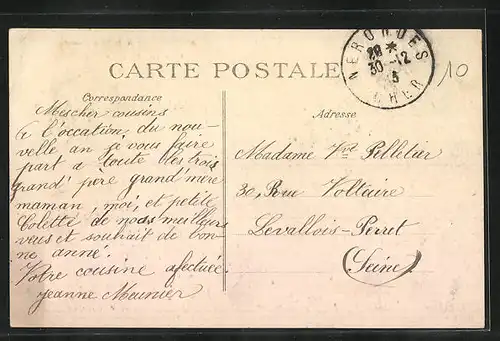 NERONDES
20 *
30 -12
15
CHER
10
CARTE POSTALE
Correspondance
Adresse
Mescher cousins
à l'occation du nou-
velle an je vous faire
part a toute des trois
grand' père grand' mère
maman, moi, et petite
Colette de noas meilleurs
vues et souhait de bon-
ne anné.
Votre cousine afectuée
Jeanne Meunier
Madame Vve Pelletier
30, Rue Voltaire
Levallois-Perret
(Seine)